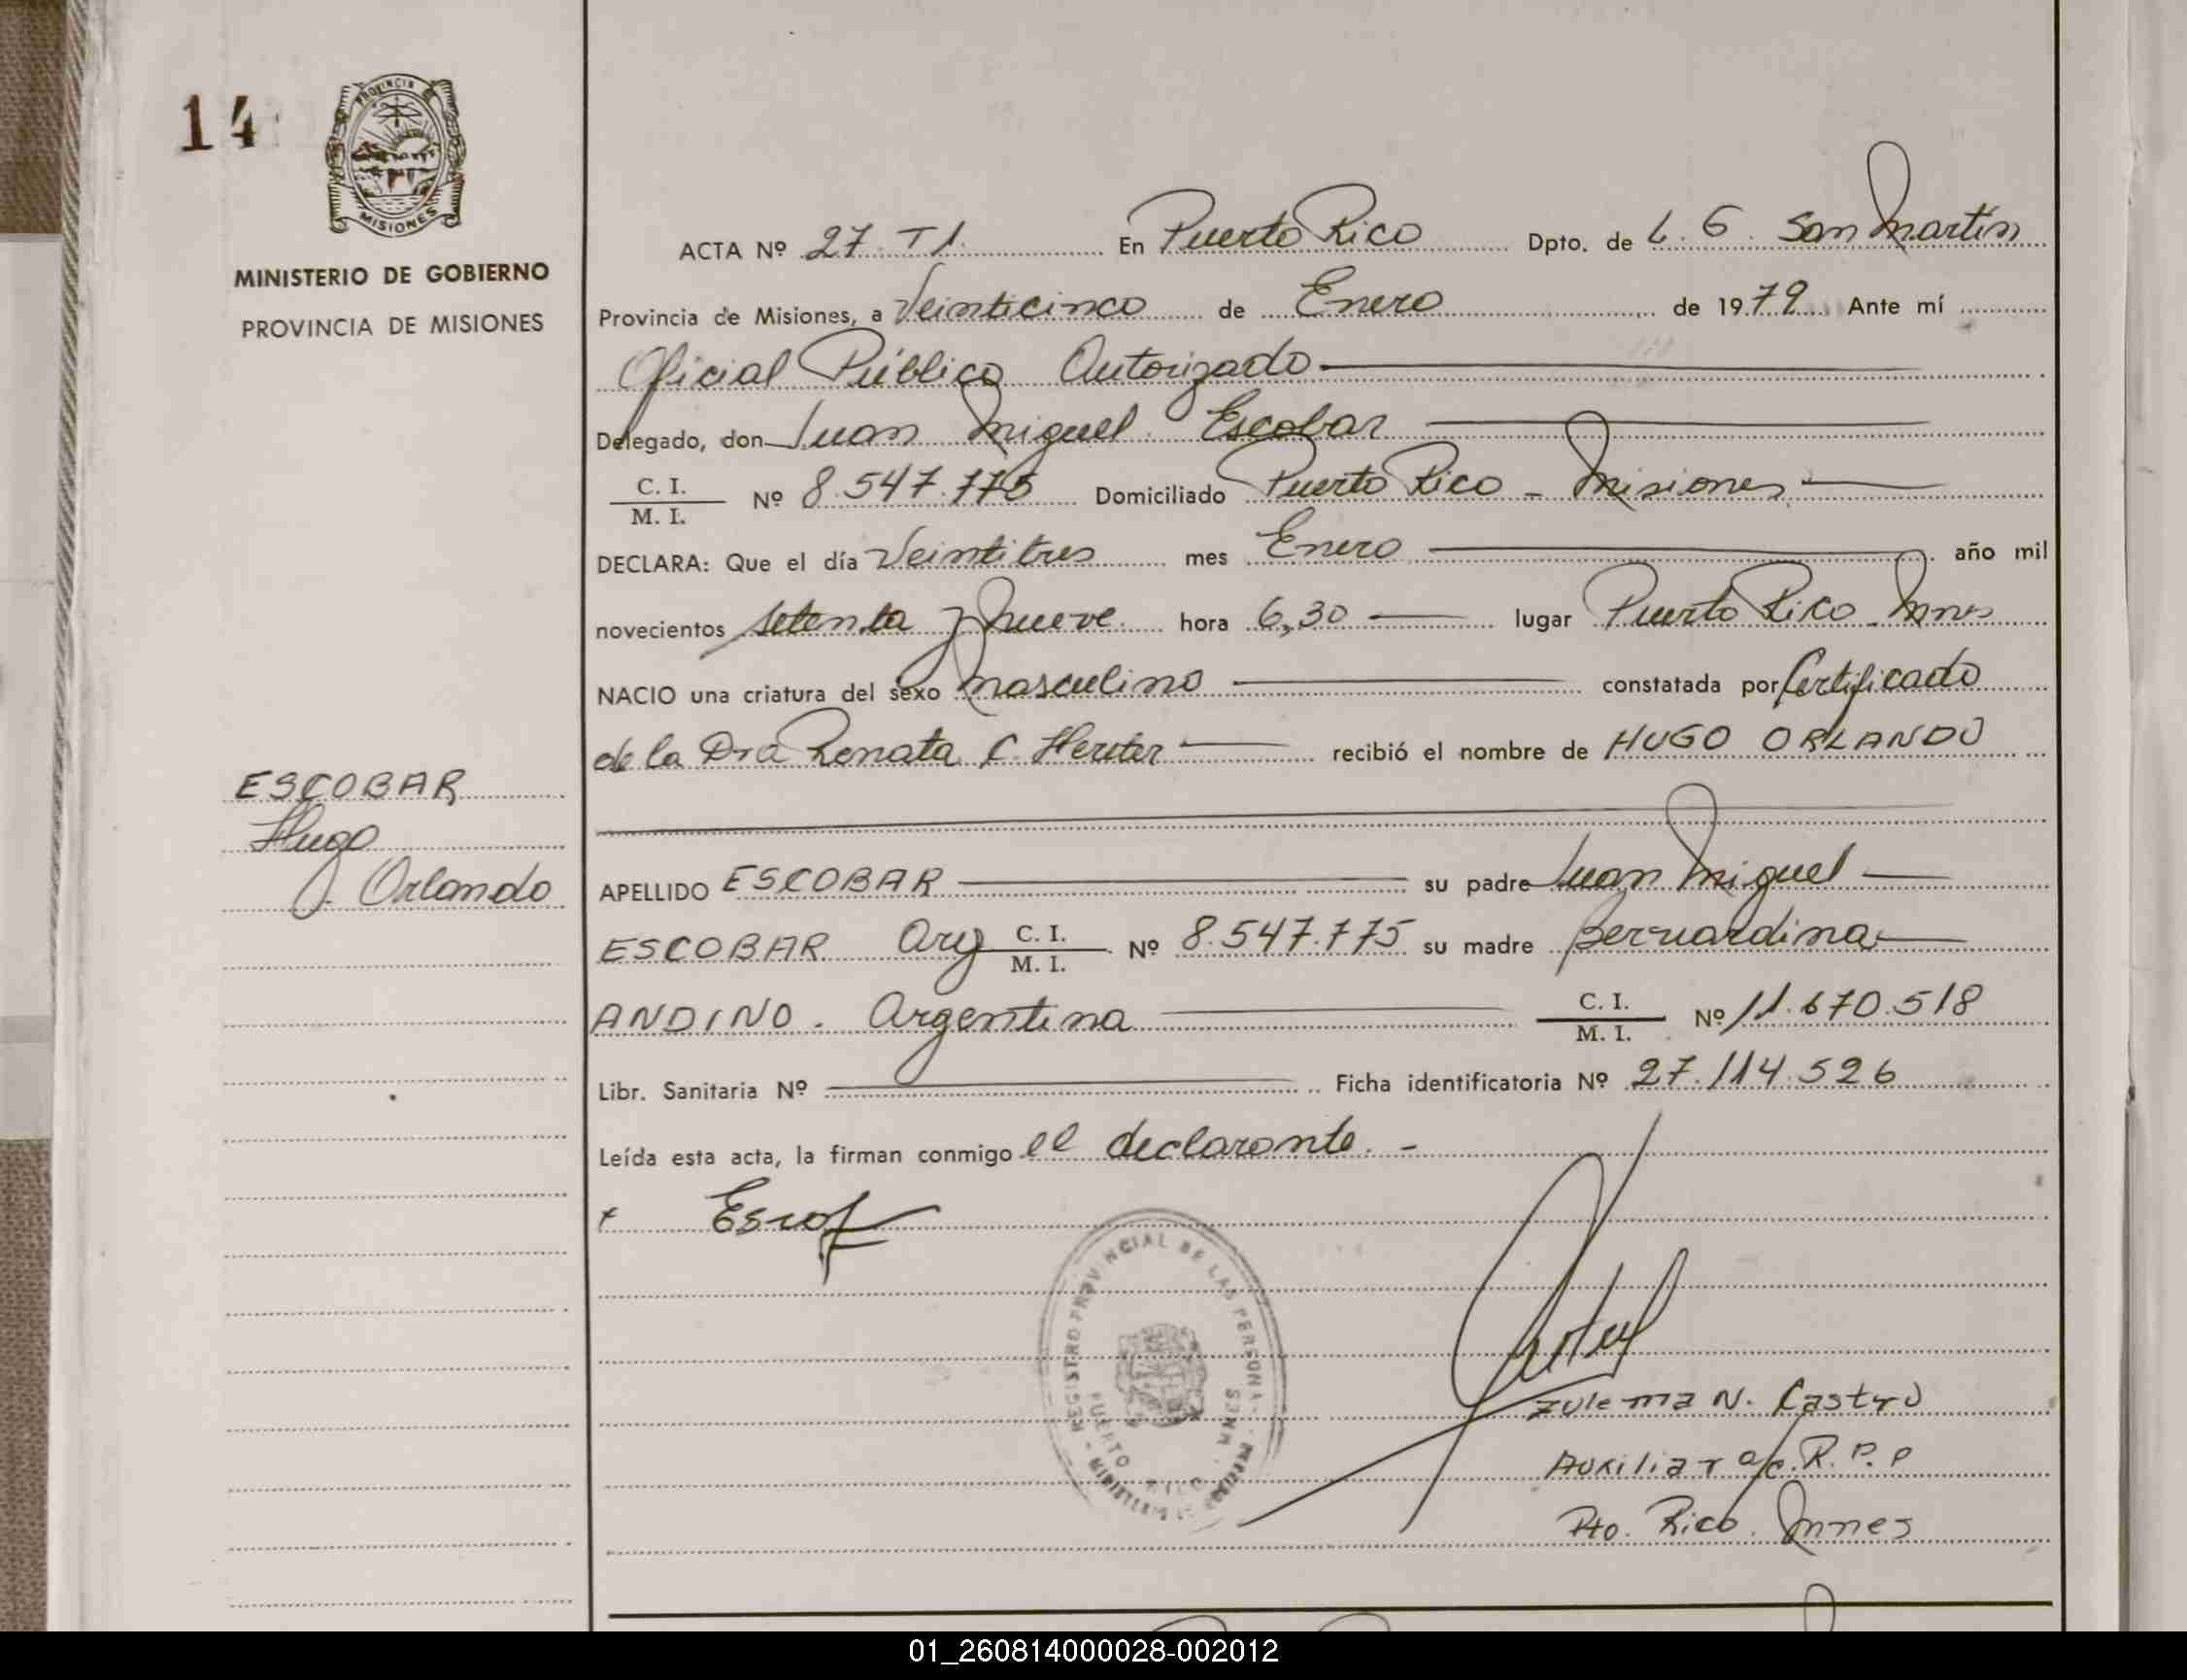 14
PROVINCIA DE
MISIONES
MINISTERIO DE GOBIERNO
PROVINCIA DE MISIONES
ESCOBAR
Hugo
Orlando
ACTA Nº 27. T1. En Puerto Rico Dpto. de L. G. San Martín
Provincia de Misiones, a Veinticinco de Enero de 1979 Ante mí
Oficial Público Autorizado
Delegado, don Juan Miguel Escobar
C. I.
M. I. Nº 8.547.775 Domiciliado Puerto Rico - Misiones
DECLARA: Que el día Veintitres mes Enero año mil
novecientos setenta y nueve hora 6,30 lugar Puerto Rico - Mnes
NACIO una criatura del sexo masculino constatada por Certificado
de la Dra Renata C. recibió el nombre de HUGO ORLANDO
APELLIDO ESCOBAR su padre Juan Miguel
ESCOBAR Arg C. I.
M. I. Nº 8.547.775 su madre Bernardina
ANDINO. Argentina C. I.
M. I. Nº 11.670.518
Libr. Sanitaria Nº Ficha identificatoria Nº 27.114.526
Leída esta acta, la firman conmigo el declarante. -
REGISTRO PROVINCIAL DE LAS PERSONAS
PUERTO RICO MNES
Zulema N. Castro
Auxiliar a/c. R. P. P
Pto. Rico. Mnes
01_260814000028-002012